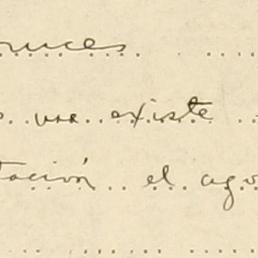 ruces
una existe
tación el ago